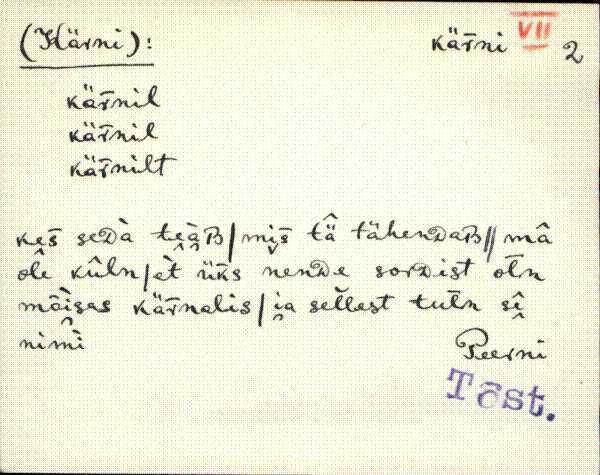 (Kärni): kär̄ni VII 2
kär̄nil
kär̄nil
kär̄nilt
kes̄ seDà tèàB / mis̄ tä̂ tähenDaB // mâ
ôle kûln / èt ük̄s nenDe sorDist ol̄n
môìsas kärnalis / ja sèllest tul̄n sî
nimì
Peerni
Tõst.